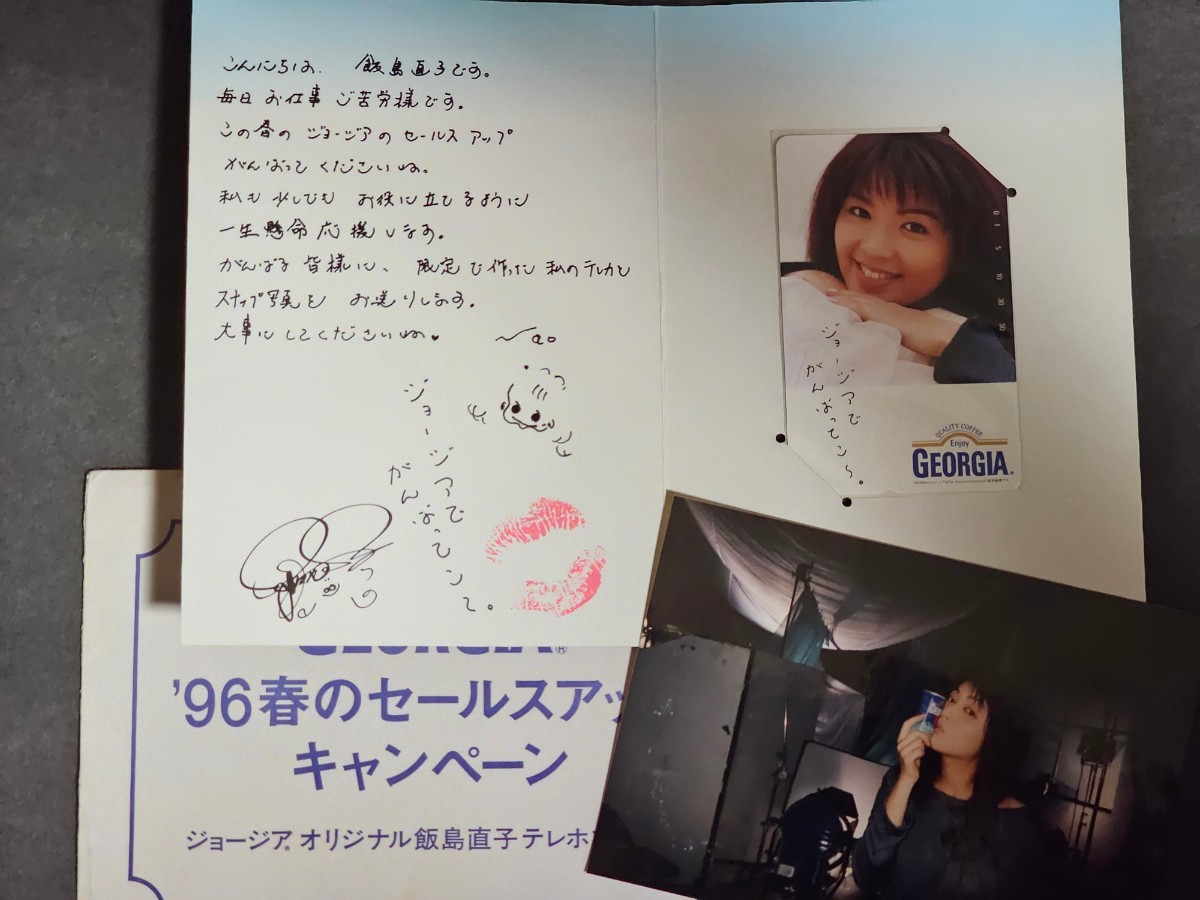 こんにちは、 飯島直子です。
毎日 お仕事 ご苦労様です。
この春の ジョージアの セールス アップ
がんばって くださいね。
私も 少しでも お役に立てるように
一生懸命 応援します。
がんばる 皆様に、 限定で作った 私のテレカと
スナップ写真を お送りします。
大事に してくださいね♥
Nao
ジョージアで
がんばってン〜。
0 1 5 10 30 50
ジョージアで
がんばってン〜。
QUALITY COFFEE
Enjoy
GEORGIA®
GEORGIA®
'96春のセールスアッ
キャンペーン
ジョージア®オリジナル飯島直子テレホ